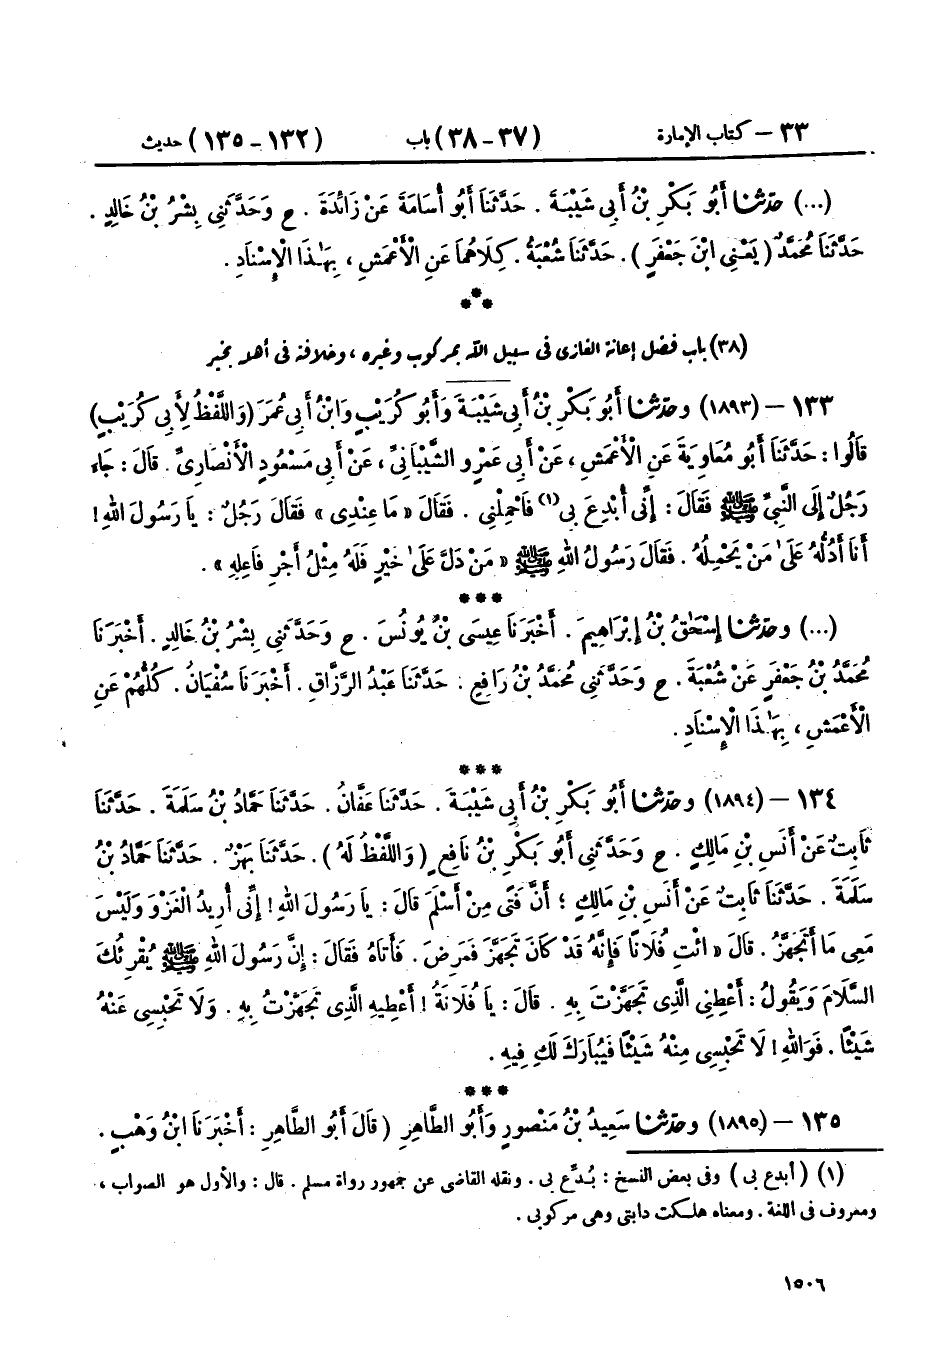 ٣٣ – كتاب الإمارة (٣٧ – ٣٨) باب (١٣٢ – ١٣٥) حديث
(...) حدثنا أَبُو بَكْرِ بْنُ أَبِي شَيْبَةَ . حَدَّثَنَا أَبُو أُسَامَةَ عَنْ زَائِدَةَ . ح وَحَدَّثَنِي بِشْرُ بْنُ خَالِدٍ .
حَدَّثَنَا مُحَمَّدٌ ( يَعْنِي ابْنَ جَعْفَرٍ ) . حَدَّثَنَا شُعْبَةُ . كِلَاهُمَا عَنِ الْأَعْمَشِ ، بِهَٰذَا الْإِسْنَادِ .
***
(٣٨) باب فضل إعانة الغازى فى سبيل الله بمركوب وغيره ، وخلافته فى أهله بخير
١٣٣ – (١٨٩٣) وحدثنا أَبُو بَكْرِ بْنُ أَبِي شَيْبَةَ وَأَبُو كُرَيْبٍ وَابْنُ أَبِي عُمَرَ (وَاللَّفْظُ لِأَبِي كُرَيْبٍ)
قَالُوا : حَدَّثَنَا أَبُو مُعَاوِيَةَ عَنِ الْأَعْمَشِ ، عَنْ أَبِي عَمْرٍو الشَّيْبَانِيِّ ، عَنْ أَبِي مَسْعُودٍ الْأَنْصَارِيِّ . قَالَ : جَاءَ
رَجُلٌ إِلَى النَّبِيِّ ﷺ فَقَالَ : إِنِّي أُبْدِعَ بِي (١) فَاحْمِلْنِي . فَقَالَ « مَا عِنْدِى » فَقَالَ رَجُلٌ : يَا رَسُولَ اللهِ !
أَنَا أَدُلُّهُ عَلَىٰ مَنْ يَحْمِلُهُ . فَقَالَ رَسُولُ اللهِ ﷺ « مَنْ دَلَّ عَلَىٰ خَيْرٍ فَلَهُ مِثْلُ أَجْرِ فَاعِلِهِ » .
***
(...) وحدثنا إِسْحَٰقُ بْنُ إِبْرَاهِيمَ . أَخْبَرَنَا عِيسَى بْنُ يُونُسَ . ح وَحَدَّثَنِي بِشْرُ بْنُ خَالِدٍ . أَخْبَرَنَا
مُحَمَّدُ بْنُ جَعْفَرٍ عَنْ شُعْبَةَ . ح وَحَدَّثَنِي مُحَمَّدُ بْنُ رَافِعٍ . حَدَّثَنَا عَبْدُ الرَّزَّاقِ . أَخْبَرَنَا سُفْيَانُ . كُلُّهُمْ عَنِ
الْأَعْمَشِ ، بِهَٰذَا الْإِسْنَادِ .
***
١٣٤ – (١٨٩٤) وحدثنا أَبُو بَكْرِ بْنُ أَبِي شَيْبَةَ . حَدَّثَنَا عَفَّانُ . حَدَّثَنَا حَمَّادُ بْنُ سَلَمَةَ . حَدَّثَنَا
ثَابِتٌ عَنْ أَنَسِ بْنِ مَالِكٍ . ح وَحَدَّثَنِي أَبُو بَكْرِ بْنُ نَافِعٍ ( وَاللَّفْظُ لَهُ ) . حَدَّثَنَا بَهْزٌ . حَدَّثَنَا حَمَّادُ بْنُ
سَلَمَةَ . حَدَّثَنَا ثَابِتٌ عَنْ أَنَسِ بْنِ مَالِكٍ ؛ أَنَّ فَتًى مِنْ أَسْلَمَ قَالَ : يَا رَسُولَ اللهِ ! إِنِّي أُرِيدُ الْغَزْوَ وَلَيْسَ
مَعِي مَا أَتَجَهَّزُ . قَالَ « ائْتِ فُلَانًا فَإِنَّهُ قَدْ كَانَ تَجَهَّزَ فَمَرِضَ . فَأَتَاهُ فَقَالَ : إِنَّ رَسُولَ اللهِ ﷺ يُقْرِئُكَ
السَّلَامَ وَيَقُولُ : أَعْطِنِي الَّذِي تَجَهَّزْتَ بِهِ . قَالَ : يَا فُلَانَةُ ! أَعْطِيهِ الَّذِي تَجَهَّزْتُ بِهِ . وَلَا تَحْبِسِي عَنْهُ
شَيْئًا . فَوَاللهِ ! لَا تَحْبِسِي مِنْهُ شَيْئًا فَيُبَارَكَ لَكِ فِيهِ .
***
١٣٥ – (١٨٩٥) وحدثنا سَعِيدُ بْنُ مَنْصُورٍ وَأَبُو الطَّاهِرِ ( قَالَ أَبُو الطَّاهِرِ : أَخْبَرَنَا ابْنُ وَهْبٍ .
(١) ( أبدع بى ) وفى بعض النسخ : بُدِّع بى . ونقله القاضى عن جمهور رواة مسلم . قال : والأول هو الصواب ،
ومعروف فى اللغة . ومعناه هلكت دابتى وهى مركوبى .
١٥٠٦